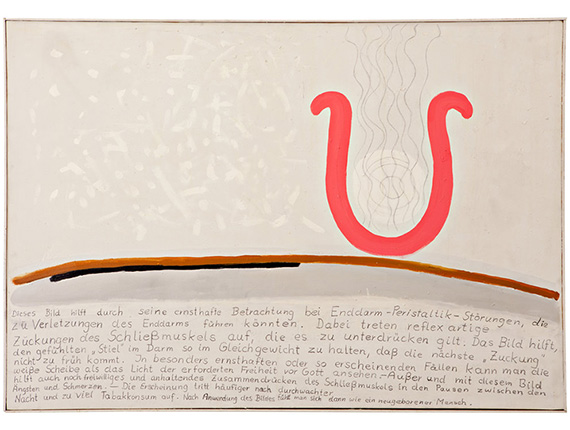 Dieses Bild hilft durch seine ernsthafte Betrachtung bei Enddarm-Peristaltik-Störungen, die
zu Verletzungen des Enddarms führen könnten. Dabei treten reflexartige
Zuckungen des Schließmuskels auf, die es zu unterdrücken gilt. Das Bild hilft,
den gefühlten „Stiel" im Darm so im Gleichgewicht zu halten, daß die nächste „Zuckung"
nicht zu früh kommt. In besonders ernsthaften oder so erscheinenden Fällen kann man die
weiße Scheibe als das Licht der erforderten Freiheit vor Gott ansehen. - Außer und mit diesem Bild
hilft auch noch freiwilliges und anhaltendes Zusammendrücken des Schließmuskels in den Pausen zwischen den
Ängsten und Schmerzen. — Die Erscheinung tritt häufiger nach durchwachter
Nacht und zu viel Tabakkonsum auf. Nach Anwendung des Bildes fühlt man sich dann wie ein neugeborener Mensch.